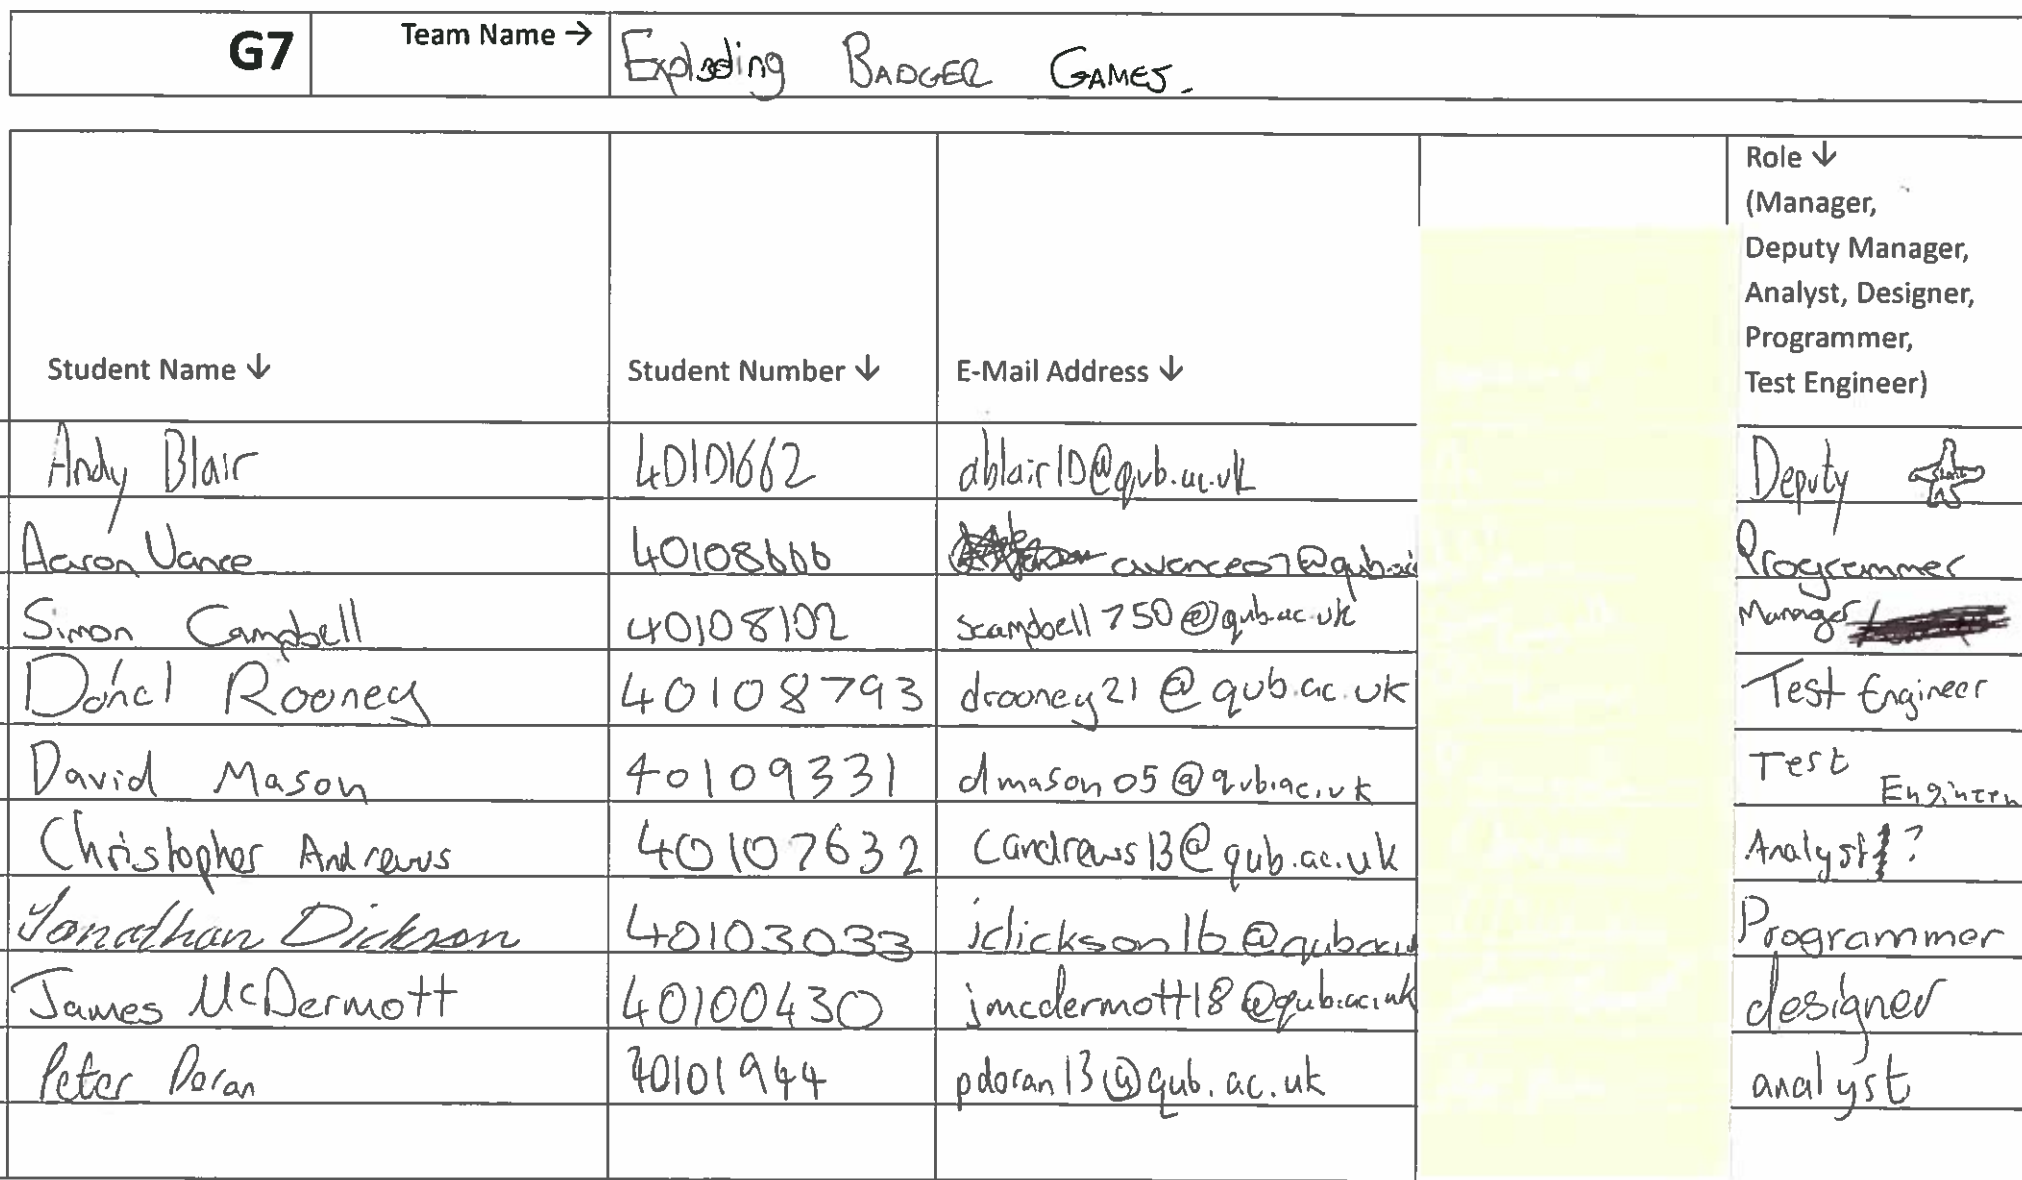 G7 Team Name → Exploding BADGER GAMES.
Role ↓
(Manager,
Deputy Manager,
Analyst, Designer,
Programmer,
Student Name ↓ Student Number ↓ E-Mail Address ↓ Test Engineer)
Andy Blair 40101662 ablair10@qub.ac.uk Deputy
Aaron Vance 40108666 avance07@qub.ac Programmer
Simon Campbell 40108102 scampbell750@qub.ac.uk Manager/
Dónal Rooney 40108793 drooney21@qub.ac.uk Test Engineer
David Mason 40109331 dmason05@qub.ac.uk Test Engineer
Christopher Andrews 40107632 candrews13@qub.ac.uk Analyst ?
Jonathan Dickson 40103033 jdickson16@qub.ac.u Programmer
James McDermott 40100430 jmcdermott18@qub.ac.uk designer
Peter Doran 40101944 pdoran13@qub.ac.uk analyst